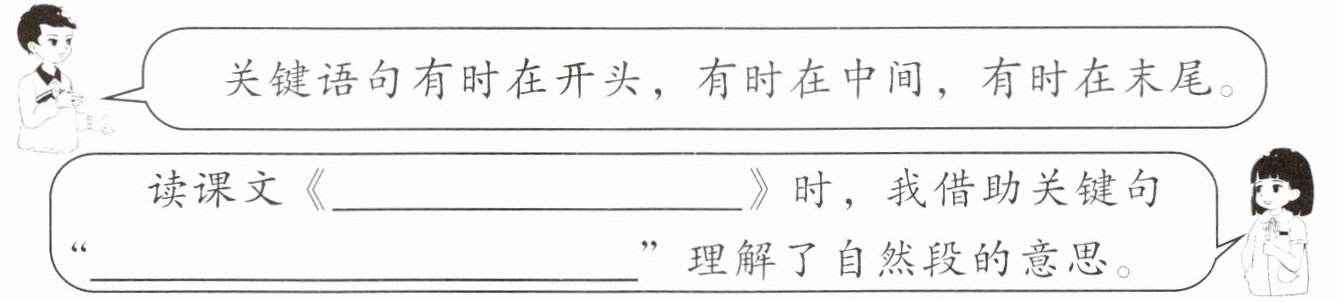 关键语句有时在开头，有时在中间，有时在末尾。
读课文《______________》时，我借助关键句
“____________________”理解了自然段的意思。